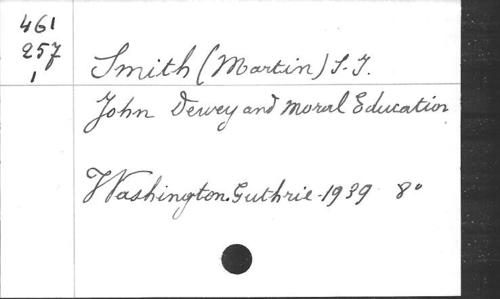 461
257
1
Smith (Martin) S.J.
John Dewey and Moral Education
Washington. Guthrie - 1939 8°